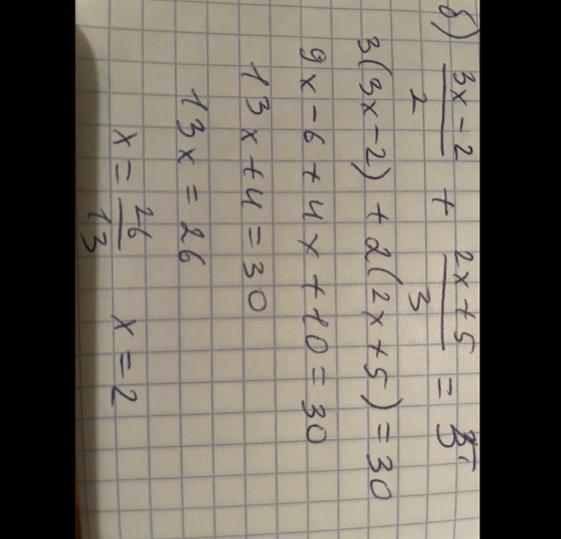 б) (3x-2)/2 + (2x+5)/3 = 5
3(3x-2) + 2(2x+5) = 30
9x-6+4x+10=30
13x+4=30
13x=26
x=26/13 x=2